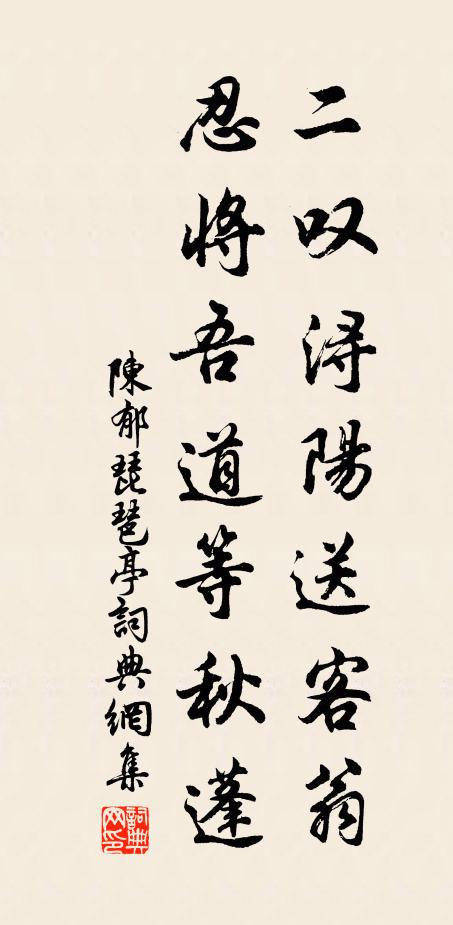 二叹浔陽送客翁
忍將吾道等秋蓬
陳郁琵琶亭詞典網集
詞典
网印